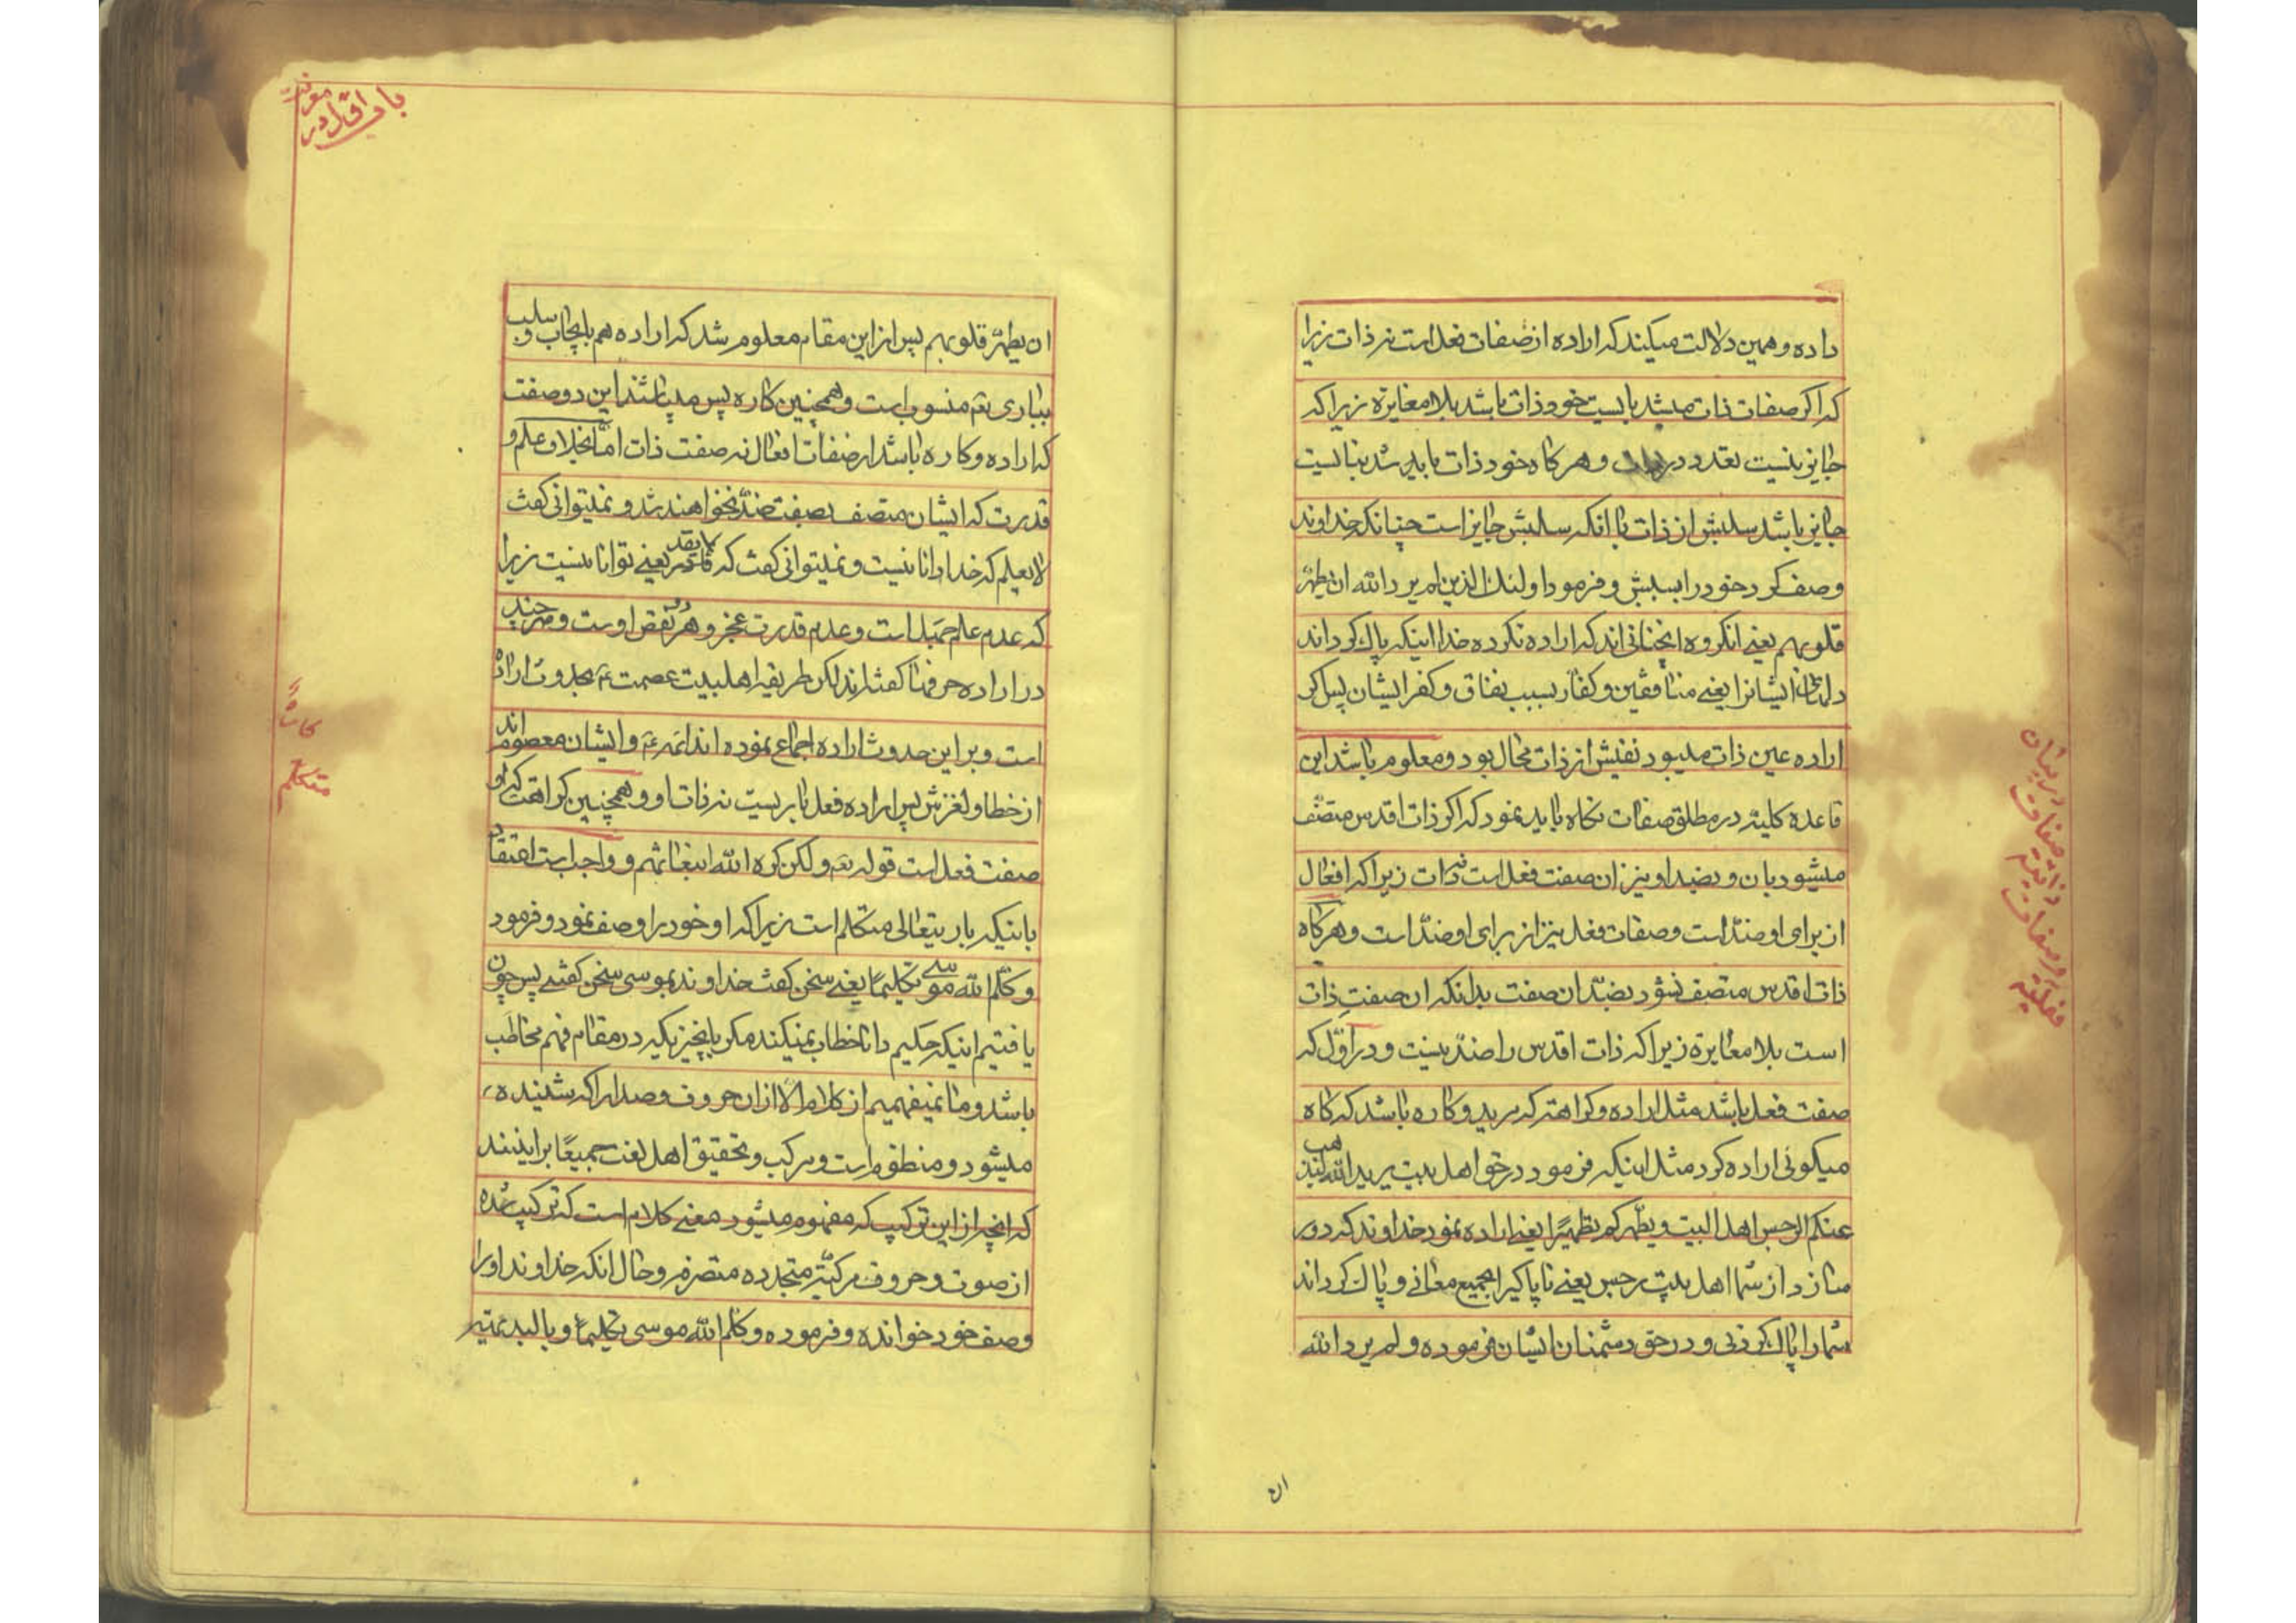 داده و همین دلالت میکند که اراده از صفات فعل است نه ذات زیرا
که اکر صفات ذات میشد بایست خود ذات باشد بلا مغایرة زیرا که
جایز نیست تعدد در ذات و هر کاه خود ذات باید شد نبایست
جایز باشد سلبش از ذات با انکه سلبش جایز است چنانکه خداوند
وصف کرد خود را بسلبش و فرمود اولئك الذین لم یرد الله ان یطهّر
قلوبهم یعنے انکروه انچنانی اند که اراده نکرده خدا اینکه پاك کرداند
دلهای ایشانرا یعنے منافقین و کفار بسبب نفاق و کفر ایشان پس اکر
اراده عین ذات میبود نفیش از ذات محال بود و معلوم باشد این
قاعده کلیته در مطلق صفات نکاه باید نمود که اکر ذات اقدس متصّف
میشود بان و بضد او نیز ان صفت فعل است نه ذات زیرا که افعال
از برای او ضدّ است و صفات فعل نیز از برای او ضدّ است و هر کاه
ذات اقدس متصف نشود بضدّ ان صفت بدانکه ان صفتِ ذات
است بلا مغایرة زیرا که ذات اقدس را ضدّ نیست و در اوّل که
صفت فعل باشد مثل اراده و کراهت که مرید و کاره باشد که کاه
میکوئی اراده کرد مثل اینکه فرمود در حق اهل بیت یرید الله لیذهب
عنکم الرجس اهل البیت و یطّهرکم تطهیرًا یعنے اراده نمود خداوند که دور
سازد از شما اهل بیت رجس یعنے ناپاکیرا بجمیع معانی و پاك کرداند
شما را پاك کردنی و در حق دشمنان ایشان فرموده و لم یرد الله
ان
در بیان
صفات
ذاتیّه
و صفات
فعلیّه
باب اوّل در
معرفت
ان یطهّر قلوبهم پس از این مقام معلوم شد که اراده هم بایجاب و سلب
بباری تعَ منسوب است و همچنین کاره پس میباشند این دو صفت
که اراده و کاره باشد از صفات افعال نه صفت ذات امّا بخلاف علم و
قدرت که ایشان متصف بصفت ضدّ نخواهند شد و نمیتوانی کفت
لا یعلم که خدا دانا نیست و نمیتوانی کفت که لا یقدر یعنے توانا نیست زیرا
که عدم علم جهل است و عدم قدرت عجز و هر دو نقص اوست و هر چند
در اراده حرفها کفته‌اند لکن طریقه اهلبیت عصمت عَ بحدوث اراده
است و بر این حدوث اراده اجماع نموده اند ائمه عَ و ایشان معصوم اند
از خطا و لغزش پس اراده فعل باریست نه ذات او و همچنین کراهت که او
صفت فعل است قوله تعَ و لکن کره الله انبعاثهم و واجب است اعتقاد
باینکه باریتعالی متکلم است زیرا که او خود را وصف نمود و فرمود
و کلّم الله موسے تکلیمًا یعنے سخن کفت خداوند بموسی سخن کفتنے پس چون
یافتیم اینکه حکیم دانا خطاب نمیکند مکر بانچیزیکه در مقام فهم مخاطَب
باشد و ما نمیفهمیم از کلام الّا از ان حروف و صدا را که شنیده
میشود و منظوم است و مرکب و تحقیق اهل لغت جمیعًا بر اینند
که انچه از این ترکیب که مفهوم میشود معنے کلام است که ترکیب شده
از صوت و حروف مرکبّه متجدده متصرمه و حال انکه خداوند او را
وصف خود خوانده و فرموده و کلم الله موسی تکلیمًا و بالبدیهیّه
متکلّم